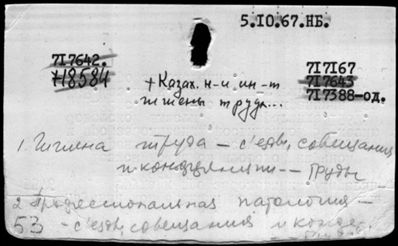 5.10.67.НБ.
717642.
+18584
717167
717643
717388-од.
+Казах. н-и ин-т
гигиены труда...
1. Гигиена труда – съезды, совещания
и конференции – Труды
2 Профессиональная патология –
53 - съезды, совещания и конфе-